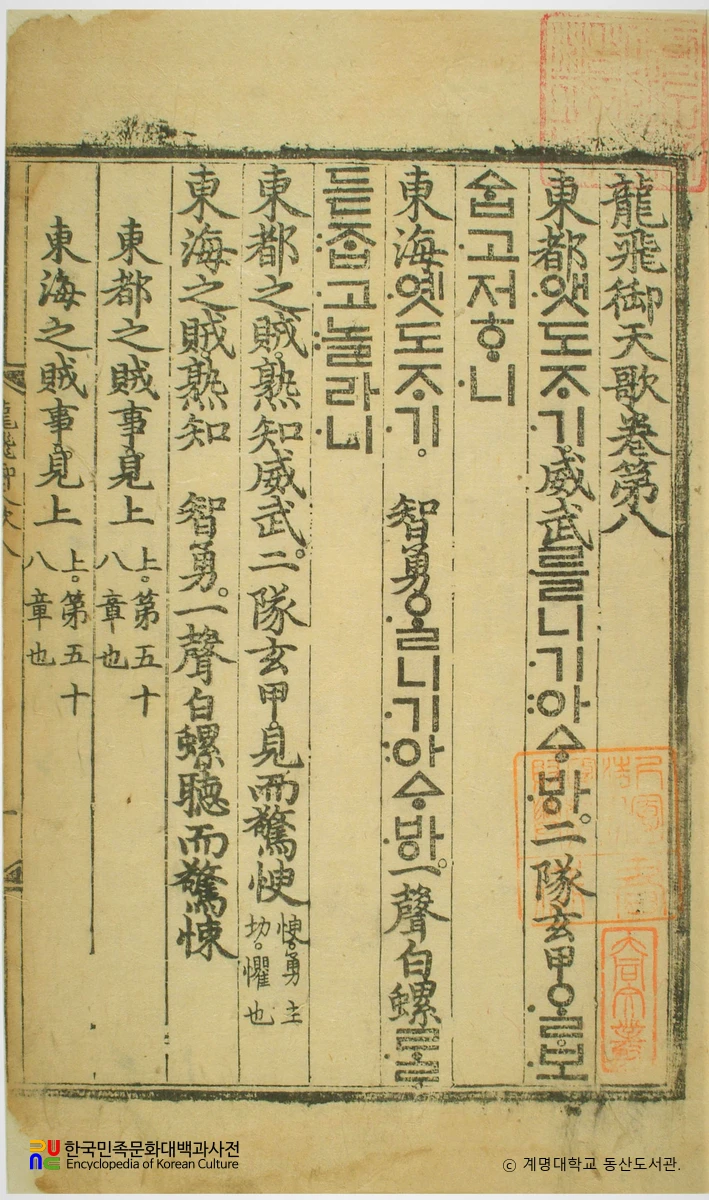 龍飛御天歌卷第八
東都앳도ᄌᆞ기。威武를니기아ᅀᆞᄫᅡ。二隊玄甲ᄋᆞᆯ보
ᅀᆞᆸ고저ᄒᆞ니
東海옛도ᄌᆞ기。智勇ᄋᆞᆯ니기아ᅀᆞᄫᅡ。一聲白螺ᄅᆞᆯ
듣ᄌᆞᆸ고놀라니
東都之賊。熟知威武。二隊玄甲。見而驚
勇主
切。懼也
東海之賊。熟知智勇。一聲白螺聽而驚悚
東都之賊事。見上
上。第五十
八章也
東海之賊事。見上
上。第五十
八章也
한국민족문화대백과사전
Encyclopedia of Korean Culture
© 계명대학교 동산도서관.